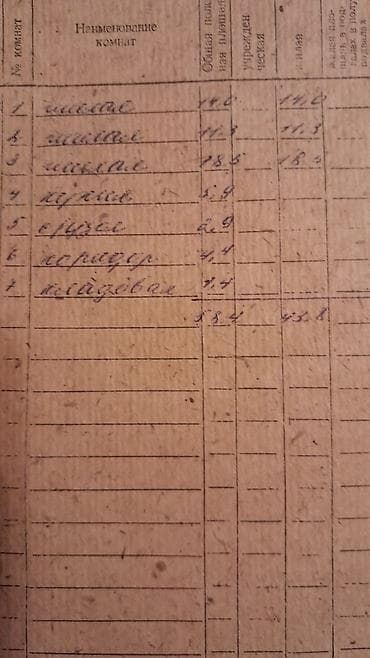 № комнат Наименование комнат Общая полез- ная площадь учрежден ческая жилая жилая пло- щадь в под- валах и полу- подвалах
1 жилая 14.0 14.0
2 жилая 11.3 11.3
3 жилая 18.5 18.5
4 кухня 5.9
5 с/узел 2.9
6 коридор 4.4
7 кладовая 1.4
58.4 43.8